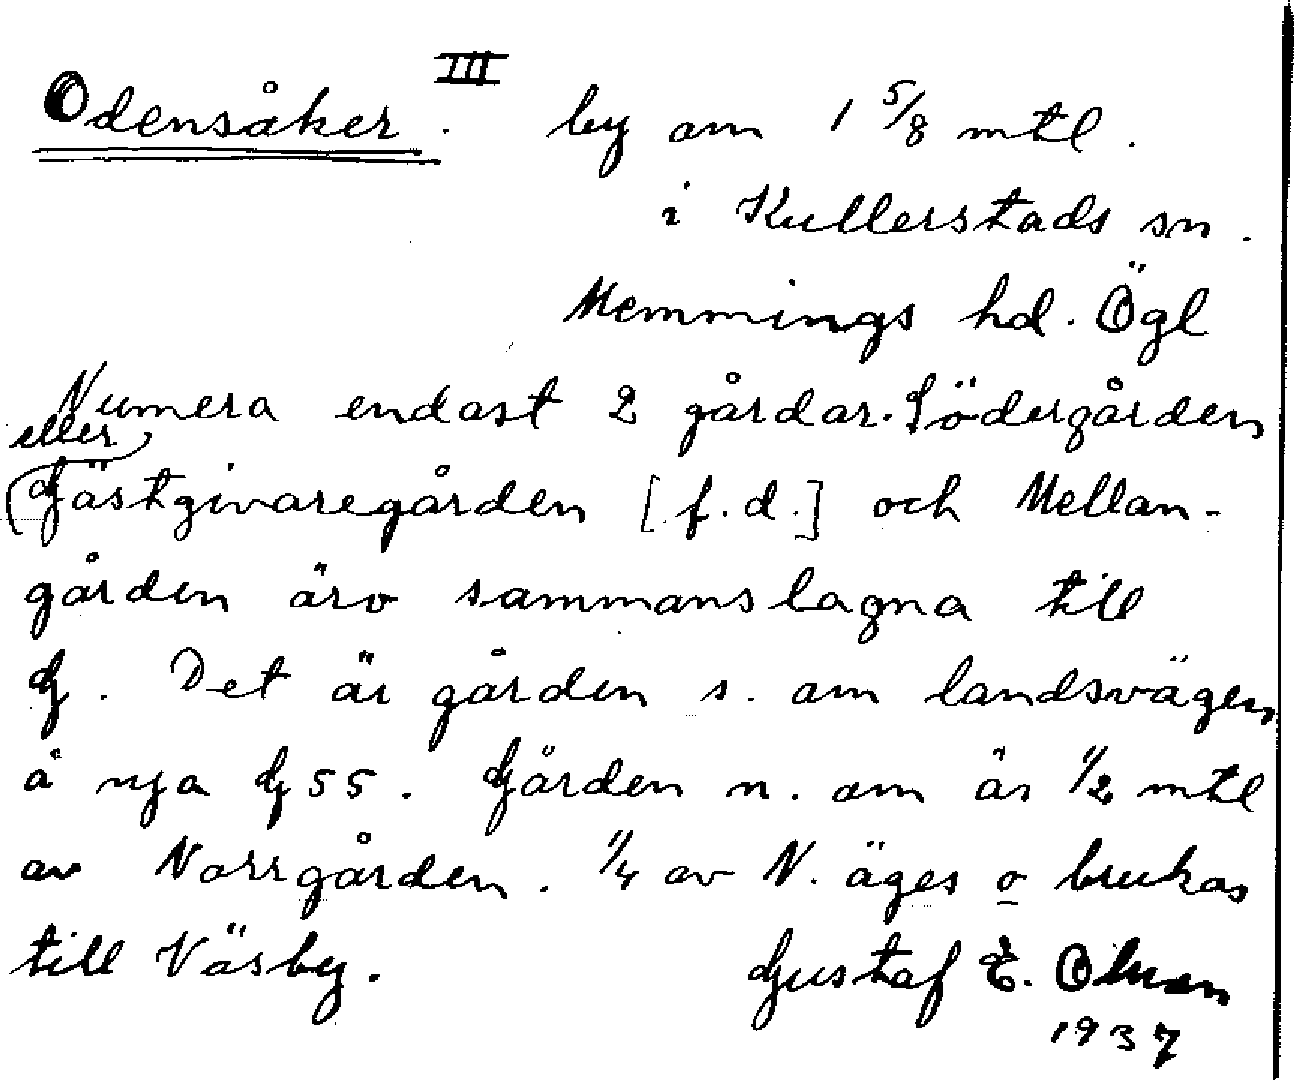 III
Odensåker. by om 1 5/8 mtl.
i Kullerstads sn.
Memmings hd. Ögl
Numera endast 2 gårdar. Södergården
eller
(Gästgivaregården [f.d.] och Mellan-
gården äro sammanslagna till
G. Det är gården s. om landsvägen
å nya G 55. Gården n. om är 1/2 mtl
av Norrgården. 1/4 av N. äges o brukas
till Väsby. Gustaf E. Olson
1937